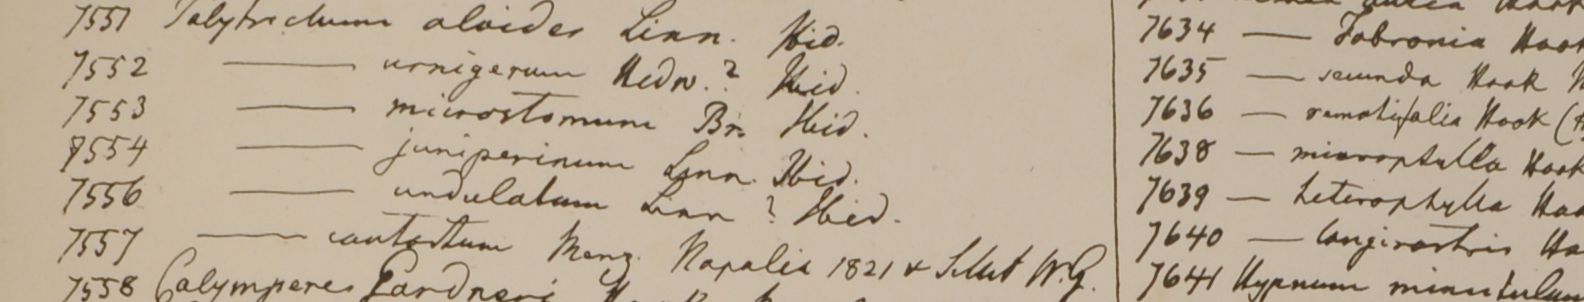 7551 Polytrichum aloides Linn. Ibid.
7552 —— urnigerum Hedw.? Ibid.
7553 —— microstomum Br. Ibid.
7554 —— juniperinum Linn. Ibid.
7556 —— undulatum Linn? Ibid.
7557 —— contortum Menz. Napalia 1821 & Silhet W.G.
7558 Calymperes Gardneri
7634 — Fabronia Hook
7635 — secunda Hook
7636 — remotifolia Hook
7638 — microphylla Hook
7639 — heterophylla
7640 — longirostris
7641 Hypnum minutulum